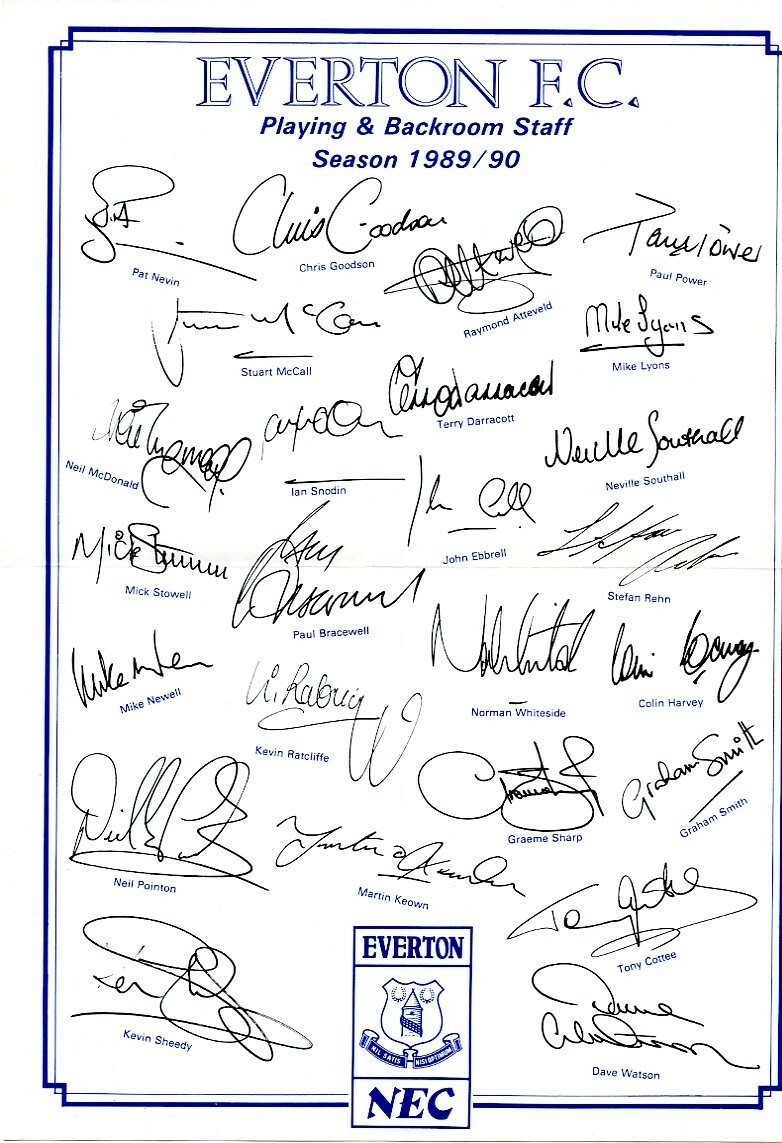 EVERTON F.C.
Playing & Backroom Staff
Season 1989/90
Pat Nevin
Chris Goodson
Chris Goodson
Raymond Atteveld
Paul Power
Stuart McCall
Mike Lyons
Mike Lyons
Neil McDonald
Ian Snodin
Terry Darracott
Neville Southall
Neville Southall
John Ebbrell
Mick Stowell
Paul Bracewell
Stefan Rehn
Mike Newell
Kevin Ratcliffe
Norman Whiteside
Colin Harvey
Graeme Sharp
Graham Smith
Graham Smith
Neil Pointon
Martin Keown
Tony Cottee
Kevin Sheedy
Dave Watson
EVERTON
NIL SATIS NISI OPTIMUM
NEC